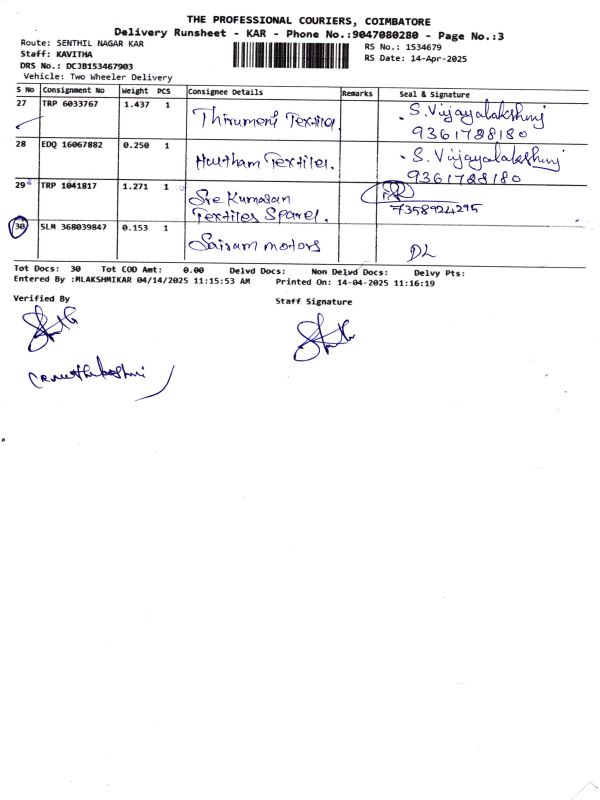 THE PROFESSIONAL COURIERS, COIMBATORE
Delivery Runsheet - KAR - Phone No.:9047080280 - Page No.:3
Route: SENTHIL NAGAR KAR
Staff: KAVITHA
DRS No.: DCJB153467903
Vehicle: Two Wheeler Delivery
RS No.: 1534679
RS Date: 14-Apr-2025
S No Consignment No Weight PCS Consignee Details Remarks Seal & Signature
27 TRP 6033767 1.437 1 Thirumeni Textiles. S.Vijayalakshmi
9361728180
28 EDQ 16067882 0.250 1 Textiles. S.Vijayalakshmi
9361728180
29 TRP 1041817 1.271 1 Sre Kumaran
Textiles Spares. 7358924295
30 SLM 368039847 0.153 1 Sairam motors DL
Tot Docs: 30 Tot COD Amt: 0.00 Delvd Docs: Non Delvd Docs: Delvy Pts:
Entered By :MLAKSHMIKAR 04/14/2025 11:15:53 AM Printed On: 14-04-2025 11:16:19
Verified By Staff Signature